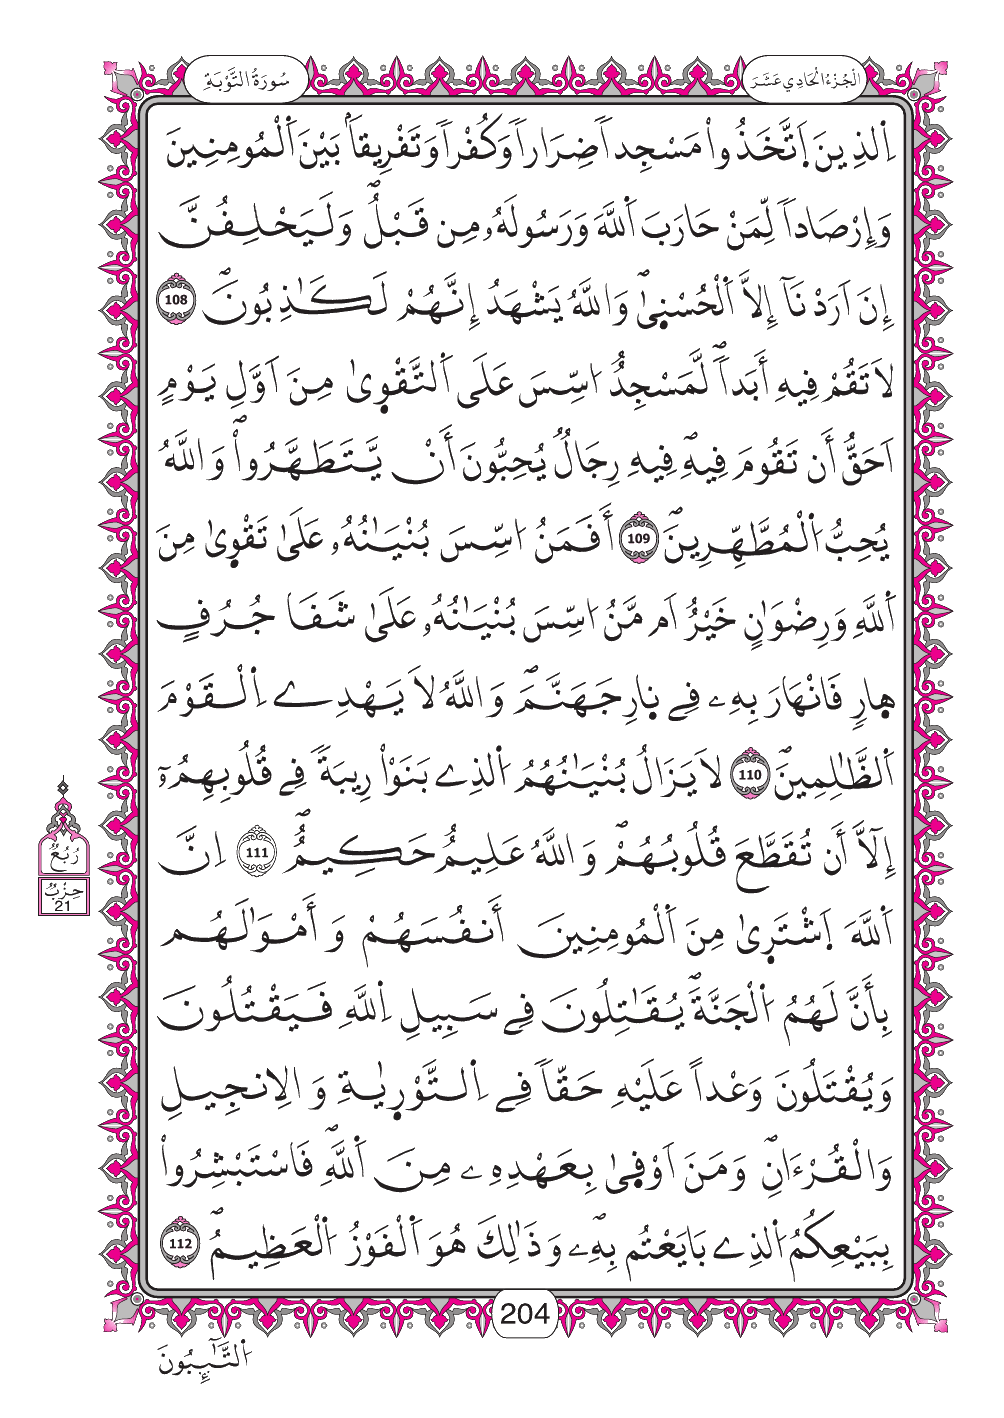 سُورَةُ التَّوْبَةِ
اَلْجُزْءُ الْحَادِي عَشَرَ
اِ۬لذِينَ اَ۪تَّخَذُواْ مَسْجِداٗ ضِرَاراٗ وَكُفْراٗ وَتَفْرِيقاَۢ بَيْنَ اَ۬لْمُومِنِينَ
وَإِرْصَاداٗ لِّمَنْ حَارَبَ اَ۬للَّهَ وَرَسُولَهُۥ مِن قَبْلُۖ وَلَيَحْلِفُنَّ
إِنَ اَرَدْنَآ إِلَّا اَ۬لْحُسْن۪يٰۖ وَاللَّهُ يَشْهَدُ إِنَّهُمْ لَكَٰذِبُونَۖ 108
لَا تَقُمْ فِيهِ أَبَداٗۖ لَّمَسْجِدٌ اُسِّسَ عَلَى اَ۬لتَّقْو۪يٰ مِنَ اَوَّلِ يَوْمٍ
اَحَقُّ أَن تَقُومَ فِيهِۖ فِيهِ رِجَالٞ يُحِبُّونَ أَنْ يَّتَطَهَّرُواْۖ وَاللَّهُ
يُحِبُّ اُ۬لْمُطَّهِّرِينَۖ 109 أَفَمَنُ اسِّسَ بُنْيَٰنُهُۥ عَلَىٰ تَقْو۪يٰ مِنَ
اَ۬للَّهِ وَرِضْوَٰنٍ خَيْرٌ اَم مَّنُ اسِّسَ بُنْيَٰنُهُۥ عَلَىٰ شَفَا جُرُفٍ
ه۪ارٖ فَانْهَارَ بِهِۦ فِے ن۪ارِ جَهَنَّمَۖ وَاللَّهُ لَا يَهْدِے اِ۬لْقَوْمَ
اَ۬لظَّٰلِمِينَۖ 110 لَا يَزَالُ بُنْيَٰنُهُمُ اُ۬لذِے بَنَوْاْ رِيبَةٗ فِے قُلُوبِهِمُۥٓ
إِلَّآ أَن تُقَطَّعَ قُلُوبُهُمْۖ وَاللَّهُ عَلِيمٌ حَكِيمٌۖ 111 اِنَّ
اَ۬للَّهَ اَ۪شْتَر۪يٰ مِنَ اَ۬لْمُومِنِينَ أَنفُسَهُمْ وَأَمْوَٰلَهُم
بِأَنَّ لَهُمُ اُ۬لْجَنَّةَۖ يُقَٰتِلُونَ فِے سَبِيلِ اِ۬للَّهِ فَيَقْتُلُونَ
وَيُقْتَلُونَ وَعْداً عَلَيْهِ حَقّاٗ فِے اِ۬لتَّوْر۪يٰةِ وَالِانجِيلِ
وَالْقُرْءَانِۖ وَمَنَ اَوْف۪يٰ بِعَهْدِهِۦ مِنَ اَ۬للَّهِۖ فَاسْتَبْشِرُواْ
بِبَيْعِكُمُ اُ۬لذِے بَايَعْتُم بِهِۦۖ وَذَٰلِكَ هُوَ اَ۬لْفَوْزُ اُ۬لْعَظِيمُۖ 112
رُبُعٌ
حِزْبٌ
21
204
اَ۬لتَّٰٓئِبُونَ